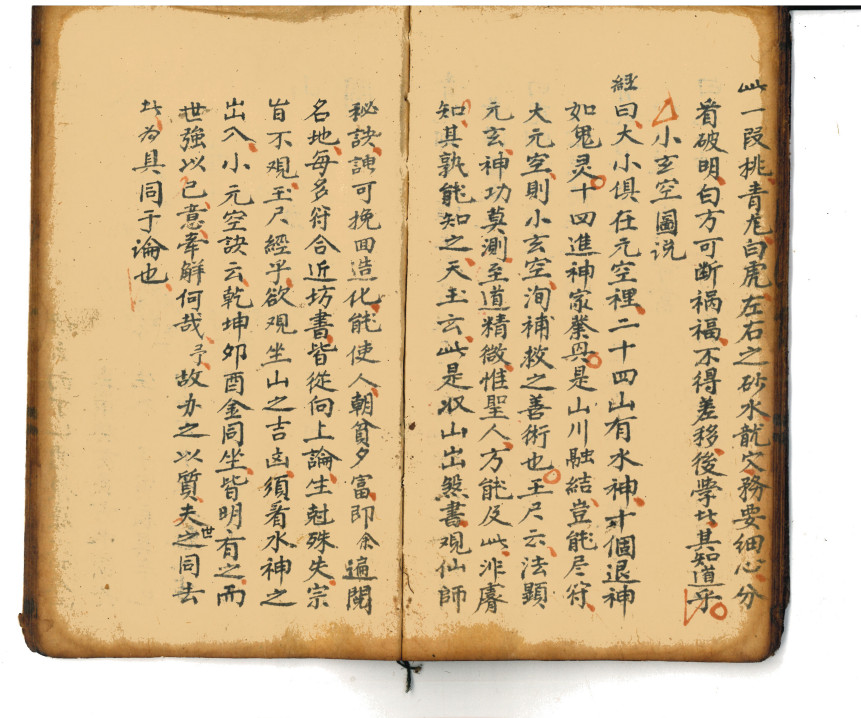 此一段挑青龙白虎左右之砂水龍穴務要细心分
看破明白方可断祸福不得差移後學比其知道乎
小玄空圖说
經曰大小俱在元空裡二十四山有水神十個退神
如鬼灵十四進神家業興是山川融結豈能尽符
大元空則小玄空洵補救之善術也玉尺云法顕
元玄神功莫測至道精微惟聖人方能及此非膚
知其孰能知之天玉玄此是収山出煞書观仙師
秘訣誠可挽回造化能使人朝貧夕富即余遍閲
名地每多符合近坊書皆從向上論生尅殊失宗
旨不观玉尺經乎欲观坐山之吉凶須看水神之
出入小元空訣云乾坤夘酉金同坐皆明有之而
世強以己意牵解何哉予故力之以質夫之世同去
比為具同于論也